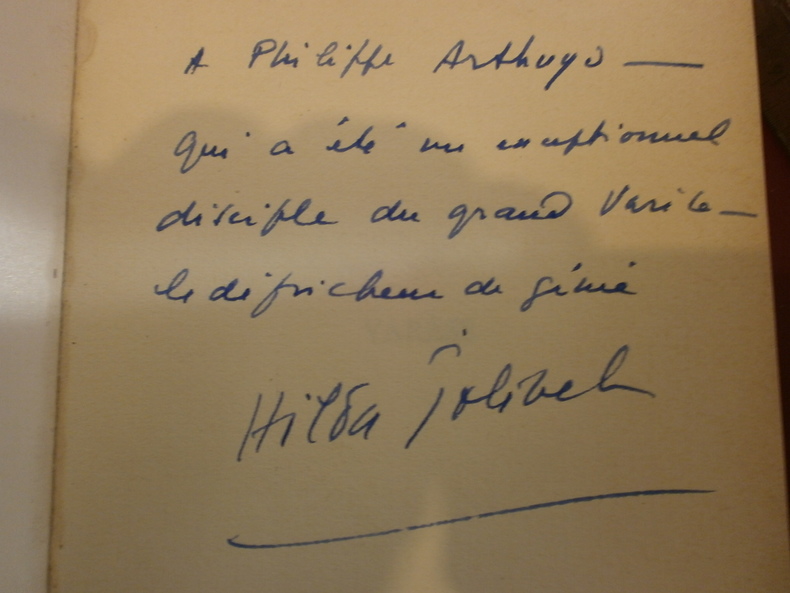 A Philippe Arthuys —
qui a été un exceptionnel
disciple du grand Varèse —
le défricheur de génie
Hilda Jolivet